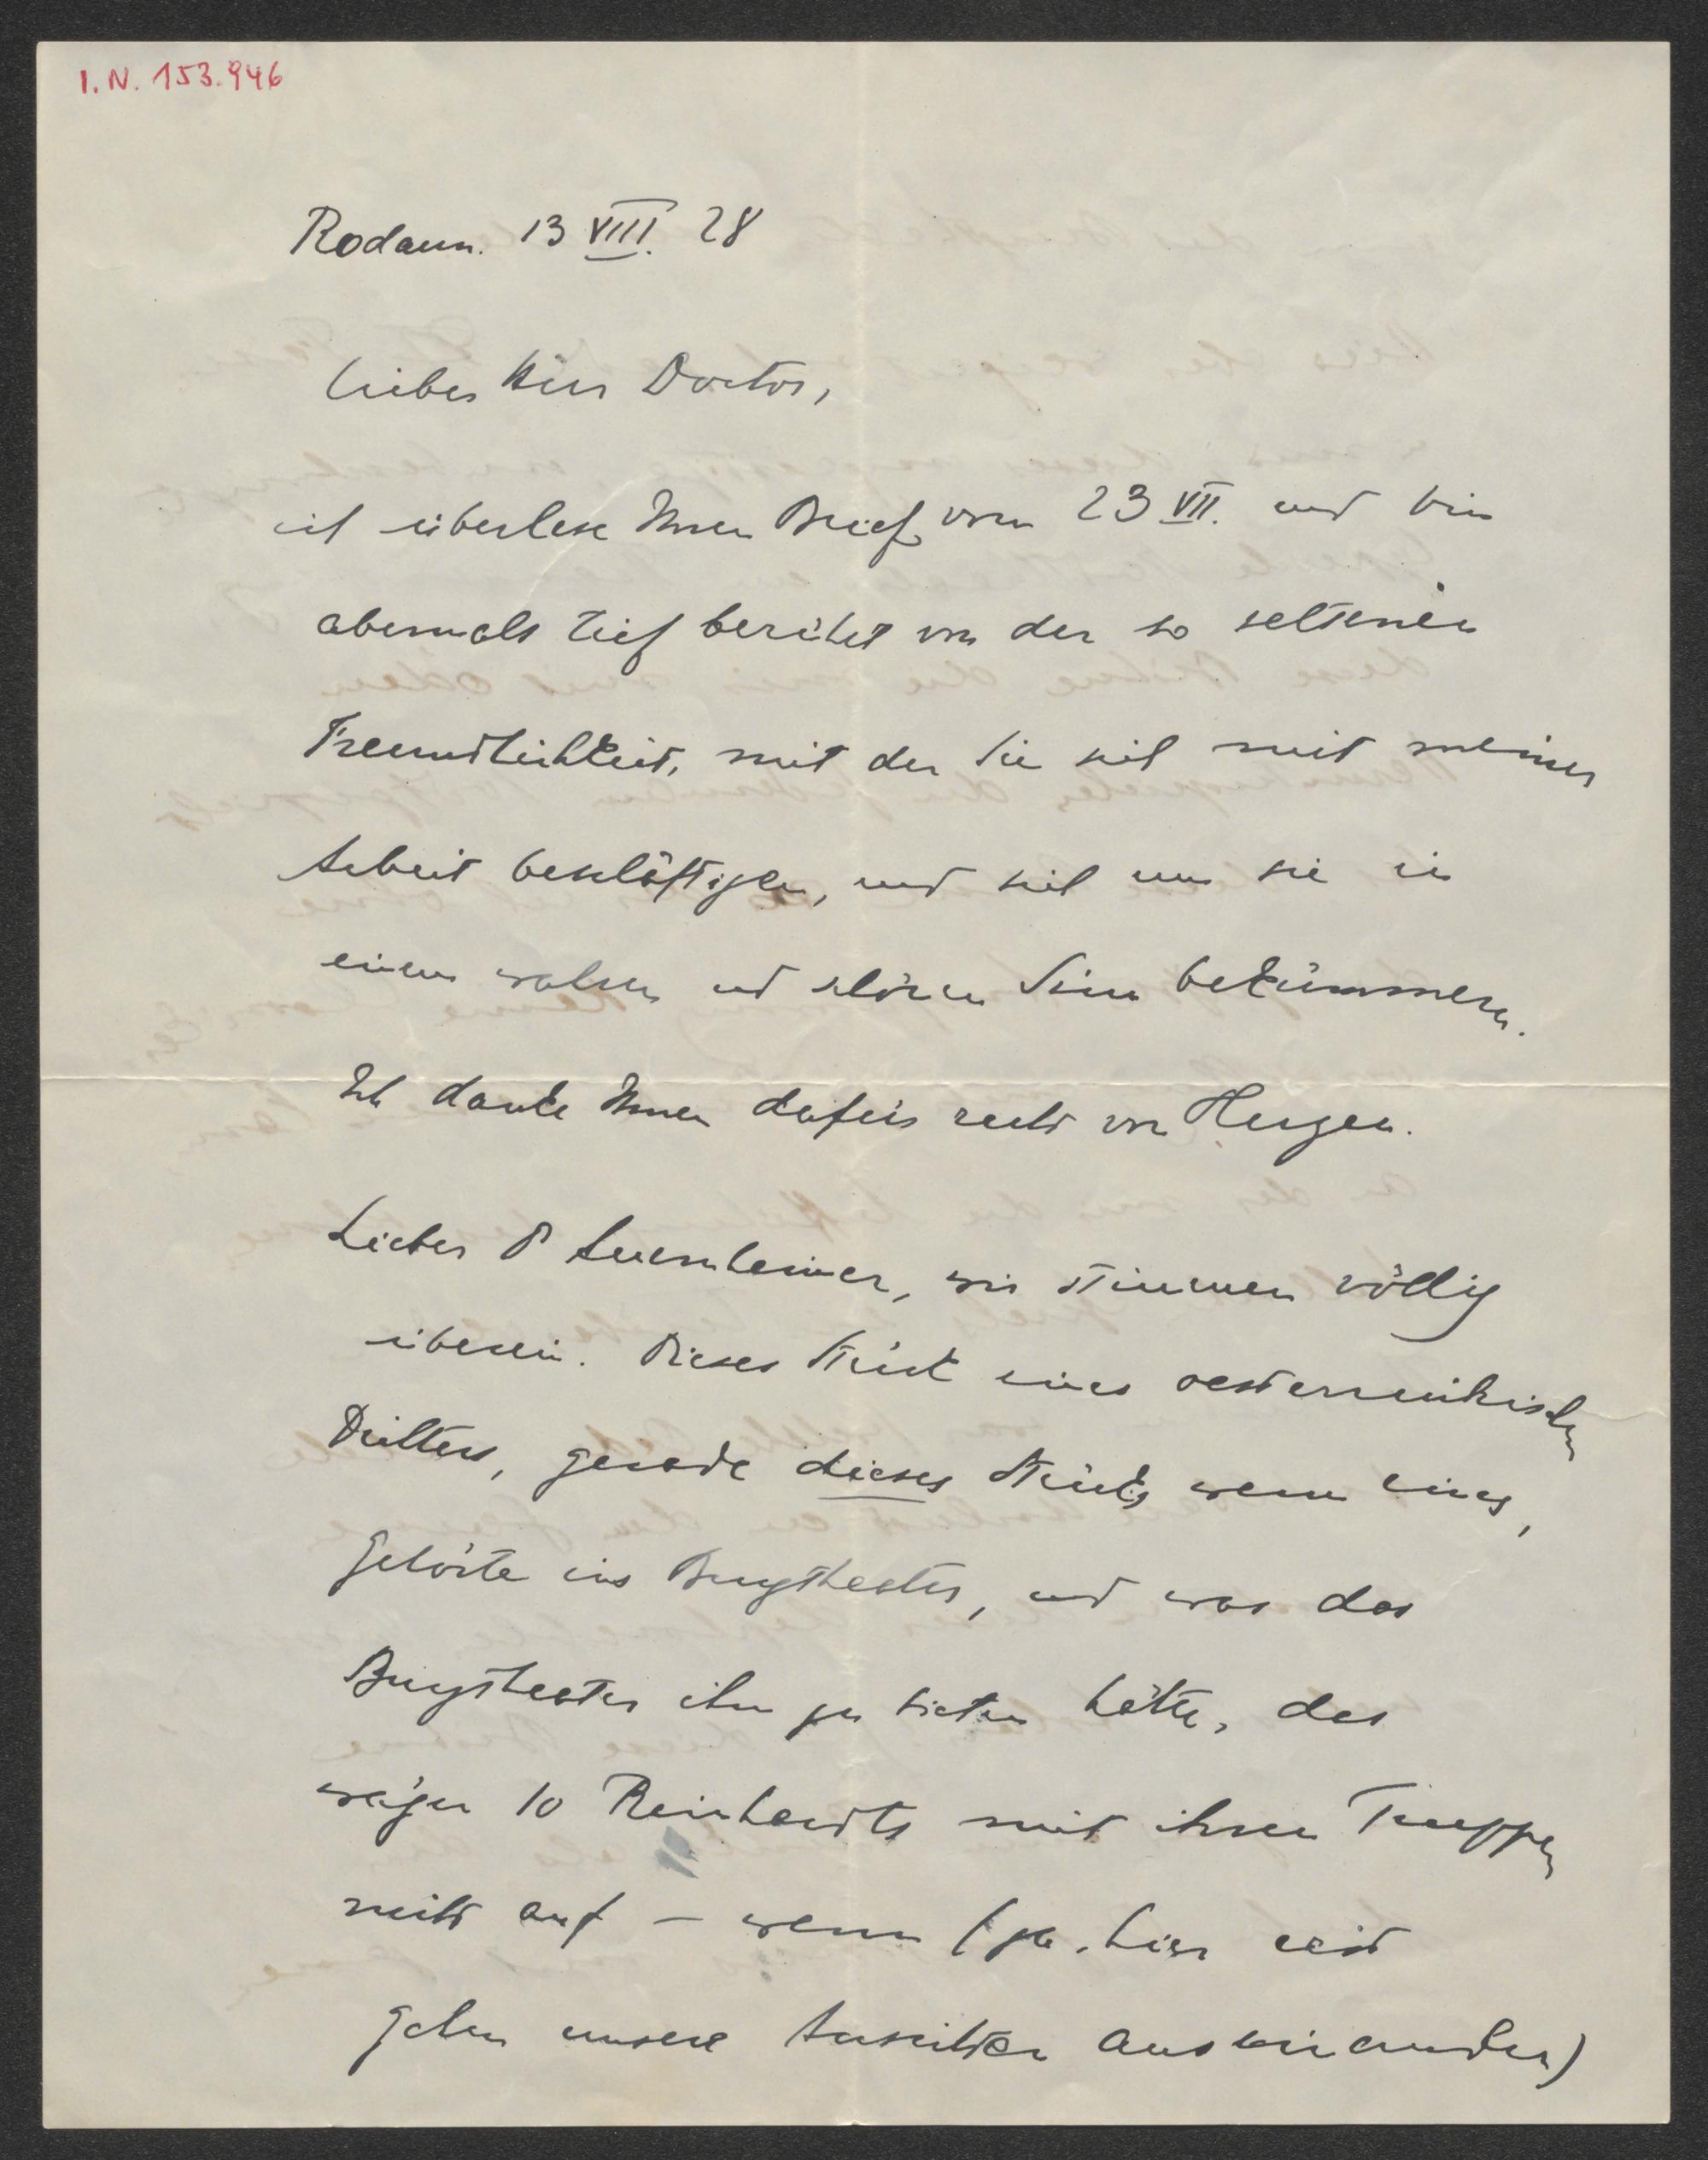 I.N. 153.946
Rodaun. 13 VIII. 28
Lieber Herr Doctor,
ich überlese Ihren Brief vom 23 VII. und bin
abermals tief berührt von der so seltenen
Freundlichkeit, mit der Sie sich mit meiner
Arbeit beschäftigen, und sich um sie in
einem wahren und schönen Sinn bekümmern.
Ich danke Ihnen dafür recht von Herzen.
Lieber D Auernheimer, wir stimmen völlig
überein. Dieses Stück eines oesterreichischen
Dichters, gerade dieses Stück, wenn eines,
gehörte ins Burgtheater, und was das
Burgtheater ihm zu bieten hätte, das
wägen 10 Reinhardts mit ihren Truppen
nicht auf – wenn (ja, hier erst
gehen unsere Ansichten auseinander)